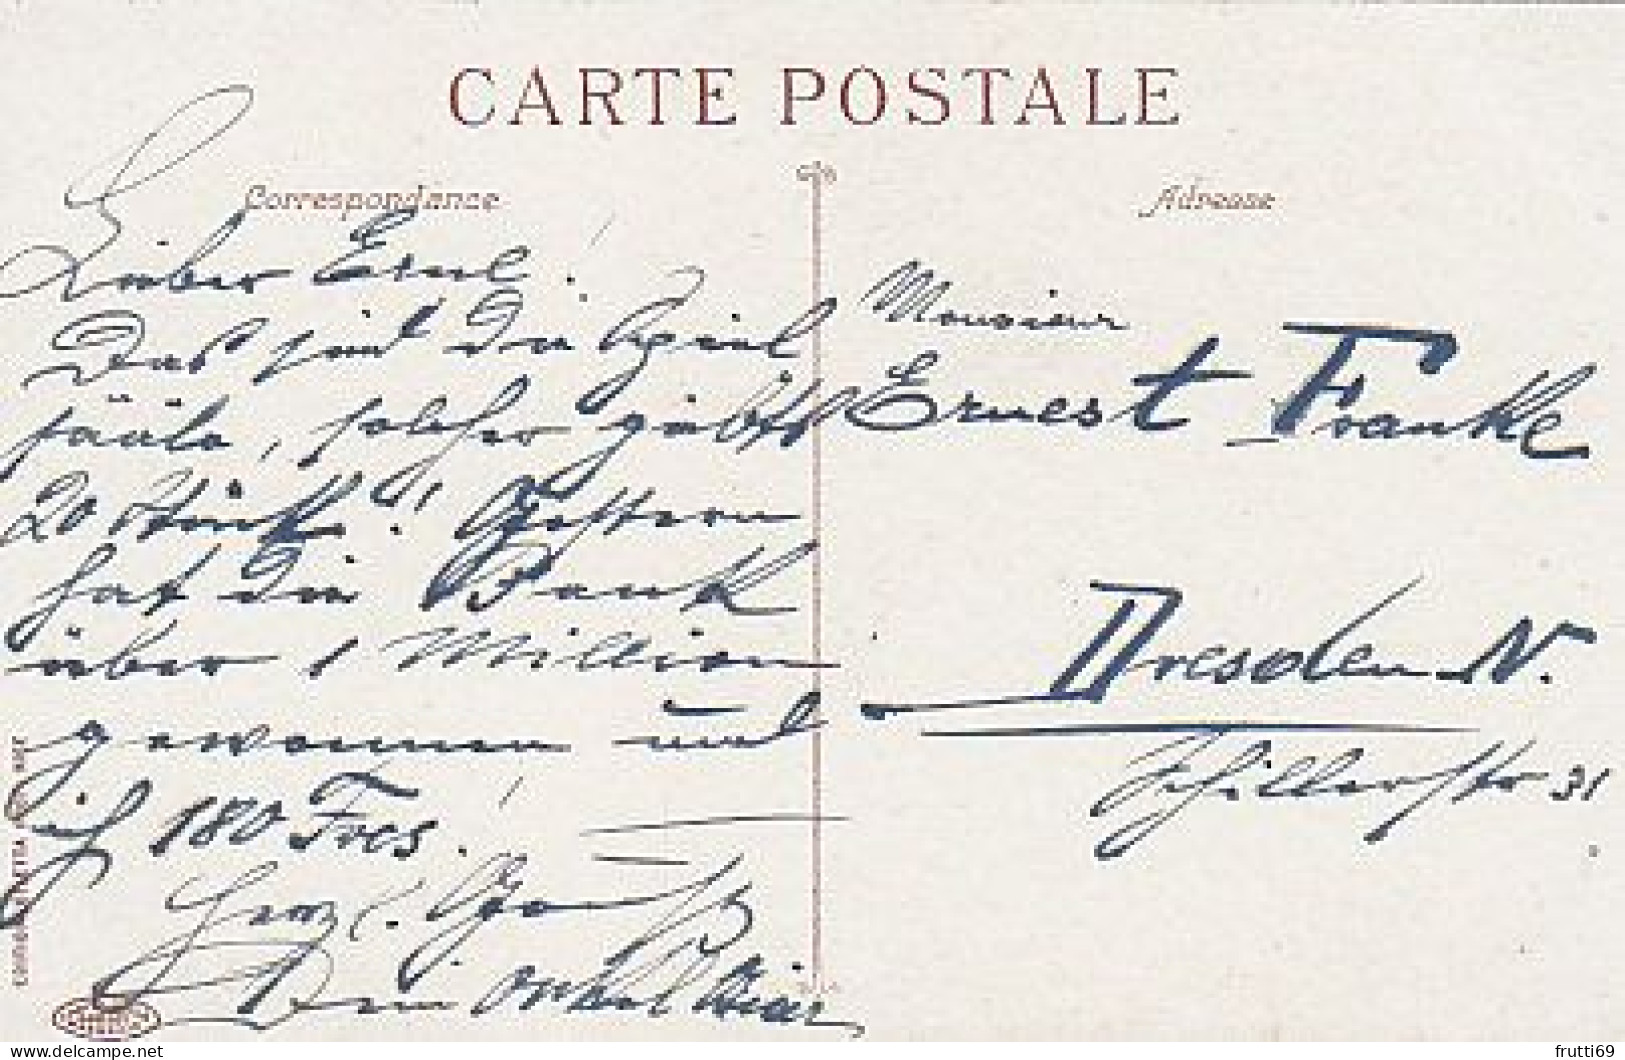 CARTE POSTALE
Correspondance
Adresse
Lieber Ernst!
Das sind die Spiel
säule, solcher giebts
20 Stück. Gestern
hat die Bank
über 1 Million
gewonnen und
ich 180 Frcs.!
Herzl. Gruß
Dein Onkel
Monsieur
Ernest Franke
Dresden N.
Schillerstr 31
delcampe.net
frutti69